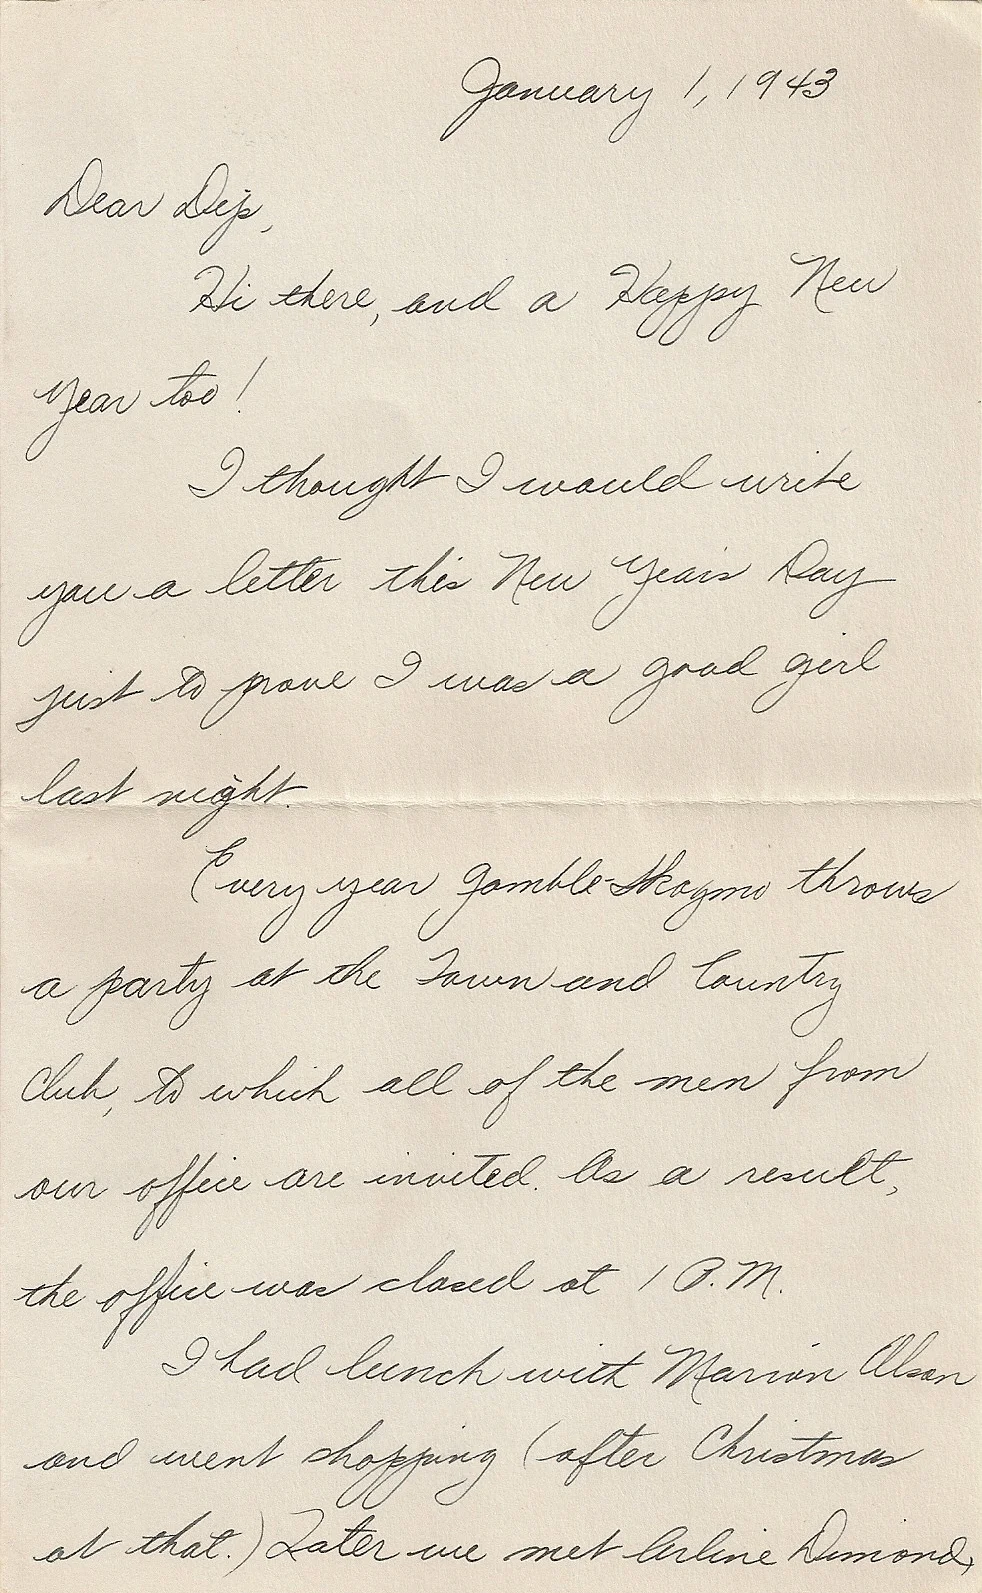 January 1, 1943
Dear Dip,
Hi there, and a Happy New
Year too!
I thought I would write
you a letter this New Years Day
just to prove I was a good girl
last night.
Every year Gamble-Skogmo throws
a party at the Town and Country
Club, to which all of the men from
our office are invited. As a result,
the office was closed at 1 P.M.
I had lunch with Marion Olson
and went shopping (after Christmas
at that.) Later we met Arline Dimond,